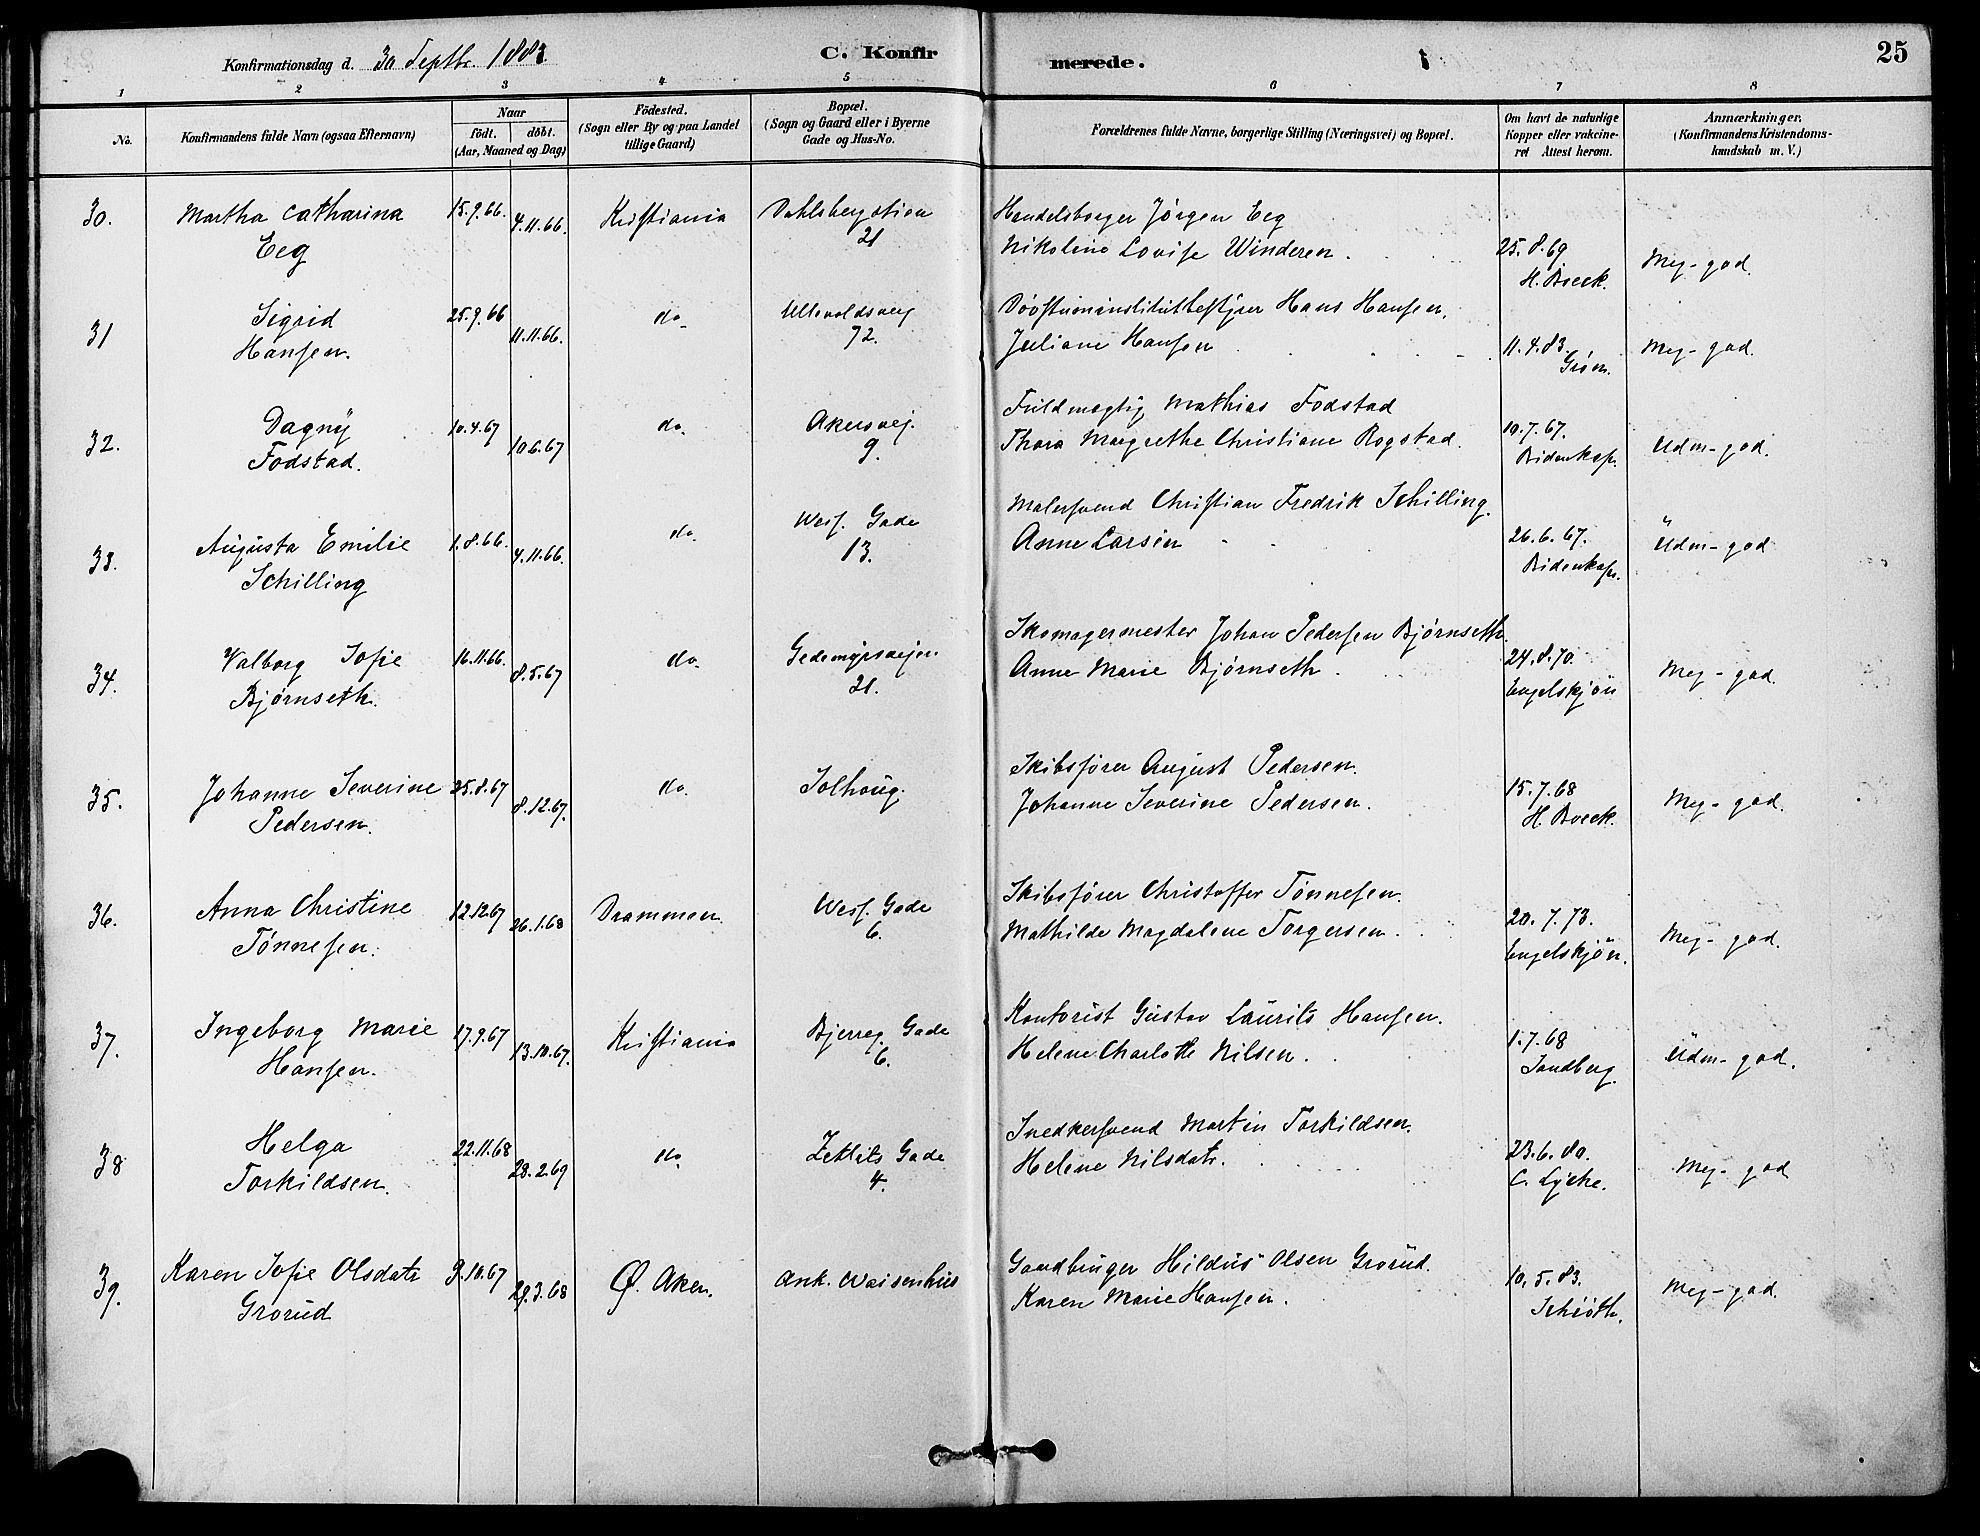 Konfirmationsdag d. 30 Septbr. 1883.
C. Konfirmerede.
25
1 2 3 4 5 6 7 8
No.
Konfirmandens fulde Navn (ogsaa Efternavn)
Naar
födt. döbt.
(Aar, Maaned og Dag)
Födested.
(Sogn eller By og paa Landet
tillige Gaard)
Bopæl.
(Sogn og Gaard eller i Byerne
Gade og Hus-No.
Forældrenes fulde Navne, borgerlige Stilling (Næringsvei) og Bopæl.
Om havt de naturlige
Kopper eller vakcine-
ret Attest herom.
Anmærkninger.
(Konfirmandens Kristendoms-
kundskab m. V.)
30. Martha Catharina 15.9.66. 4.11.66. Kristiania Dahlsbergstien Handelsborger Jørgen Eeg
Eeg 21 Nikoline Lovise Winderen. 25.8.69 Meg-god.
H. Boeck.
31 Sigrid 25.9.66 11.11.66. do. Ullevoldsvej Hans Hansen.
Hansen. 72. Juliane Hansen 11.4.83. Meg-god.
Grøn.
32. Dagny 10.4.67 10.6.67 do. Akersvej. Fuldmægtig Mathias Fodstad
Fodstad. 9. Thora Margrethe Christiane Rogstad. 10.7.67. Udm-god.
Bidenkap.
33. Augusta Emilie 1.8.66. 4.11.66. do. Wess. Gade Malersvend Christian Fredrik Schilling.
Schilling 13. Anne Larsen 26.6.67. Udm-god
Bidenkap.
34. Valborg Sofie 16.11.66. 8.5.67 do. Gedemyrsvejen. Skomagermester Johan Pedersen Bjørnseth
Bjørnseth. 21. Anne Marie Bjørnseth. 24.8.70. Meg-god.
Engelskjön
35. Johanne Severine 25.8.67 8.12.67. do. Solhoug. Skibsfører August Pedersen.
Pedersen. Johanne Severine Pedersen. 15.7.68 Meg-god.
H. Boeck.
36. Anna Christine 12.12.67 26.1.68 Drammen. Wess. Gade Skibsfører Christoffer Tønnesen.
Tønnesen. 6. Mathilde Magdalene Torgersen. 20.7.73. Meg-god.
Engelskjön.
37. Ingeborg Marie 17.9.67 13.10.67. Kristiania Bjerreg. Gade Kontorist Gustav Laurits Hansen.
Hansen. 6. Helene Charlotte Nilsen. 1.7.68 Udm-god.
Sandberg.
38 Helga 22.11.68 28.2.69 do. Zetlits Gade Snedkersvend Martin Torkildsen.
Torkildsen. 4. Helene Nilsdatr. 23.6.80. Meg-god
C. Lyche.
39. Karen Sofie Olsdatr 9.10.67 29.3.68 Ø. Aker. Ank. Waisenhus Gaardbruger Hildus Olsen Grorud.
Grorud Karen Marie Hansen. 10.5.83. Meg-god.
Schiøth.